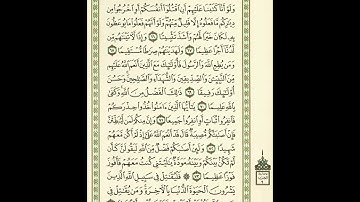 وَلَوْ أَنَّا كَتَبْنَا عَلَيْهِمْ أَنِ ٱقْتُلُوٓا۟ أَنفُسَكُمْ أَوِ ٱخْرُجُوا۟ مِن
دِيَٰرِكُم مَّا فَعَلُوهُ إِلَّا قَلِيلٌ مِّنْهُمْ وَلَوْ أَنَّهُمْ فَعَلُوا۟ مَا يُوعَظُونَ
بِهِۦ لَكَانَ خَيْرًا لَّهُمْ وَأَشَدَّ تَثْبِيتًا ٦٦ وَإِذًا لَّءَاتَيْنَٰهُم مِّن
لَّدُنَّآ أَجْرًا عَظِيمًا ٦٧ وَلَهَدَيْنَٰهُمْ صِرَٰطًا مُّسْتَقِيمًا ٦٨
وَمَن يُطِعِ ٱللَّهَ وَٱلرَّسُولَ فَأُو۟لَٰٓئِكَ مَعَ ٱلَّذِينَ أَنْعَمَ ٱللَّهُ عَلَيْهِم
مِّنَ ٱلنَّبِيِّۦنَ وَٱلصِّدِّيقِينَ وَٱلشُّهَدَآءِ وَٱلصَّٰلِحِينَ وَحَسُنَ
أُو۟لَٰٓئِكَ رَفِيقًا ٦٩ ذَٰلِكَ ٱلْفَضْلُ مِنَ ٱللَّهِ وَكَفَىٰ
بِٱللَّهِ عَلِيمًا ٧٠ يَٰٓأَيُّهَا ٱلَّذِينَ ءَامَنُوا۟ خُذُوا۟ حِذْرَكُمْ
فَٱنفِرُوا۟ ثُبَاتٍ أَوِ ٱنفِرُوا۟ جَمِيعًا ٧١ وَإِنَّ مِنكُمْ لَمَن لَّيُبَطِّئَنَّ
فَإِنْ أَصَٰبَتْكُم مُّصِيبَةٌ قَالَ قَدْ أَنْعَمَ ٱللَّهُ عَلَىَّ إِذْ لَمْ أَكُن مَّعَهُمْ
شَهِيدًا ٧٢ وَلَئِنْ أَصَٰبَكُمْ فَضْلٌ مِّنَ ٱللَّهِ لَيَقُولَنَّ كَأَن
لَّمْ تَكُنۢ بَيْنَكُمْ وَبَيْنَهُۥ مَوَدَّةٌ يَٰلَيْتَنِى كُنتُ مَعَهُمْ فَأَفُوزَ
فَوْزًا عَظِيمًا ٧٣ ۞ فَلْيُقَٰتِلْ فِى سَبِيلِ ٱللَّهِ ٱلَّذِينَ
يَشْرُونَ ٱلْحَيَوٰةَ ٱلدُّنْيَا بِٱلْءَاخِرَةِ وَمَن يُقَٰتِلْ فِى